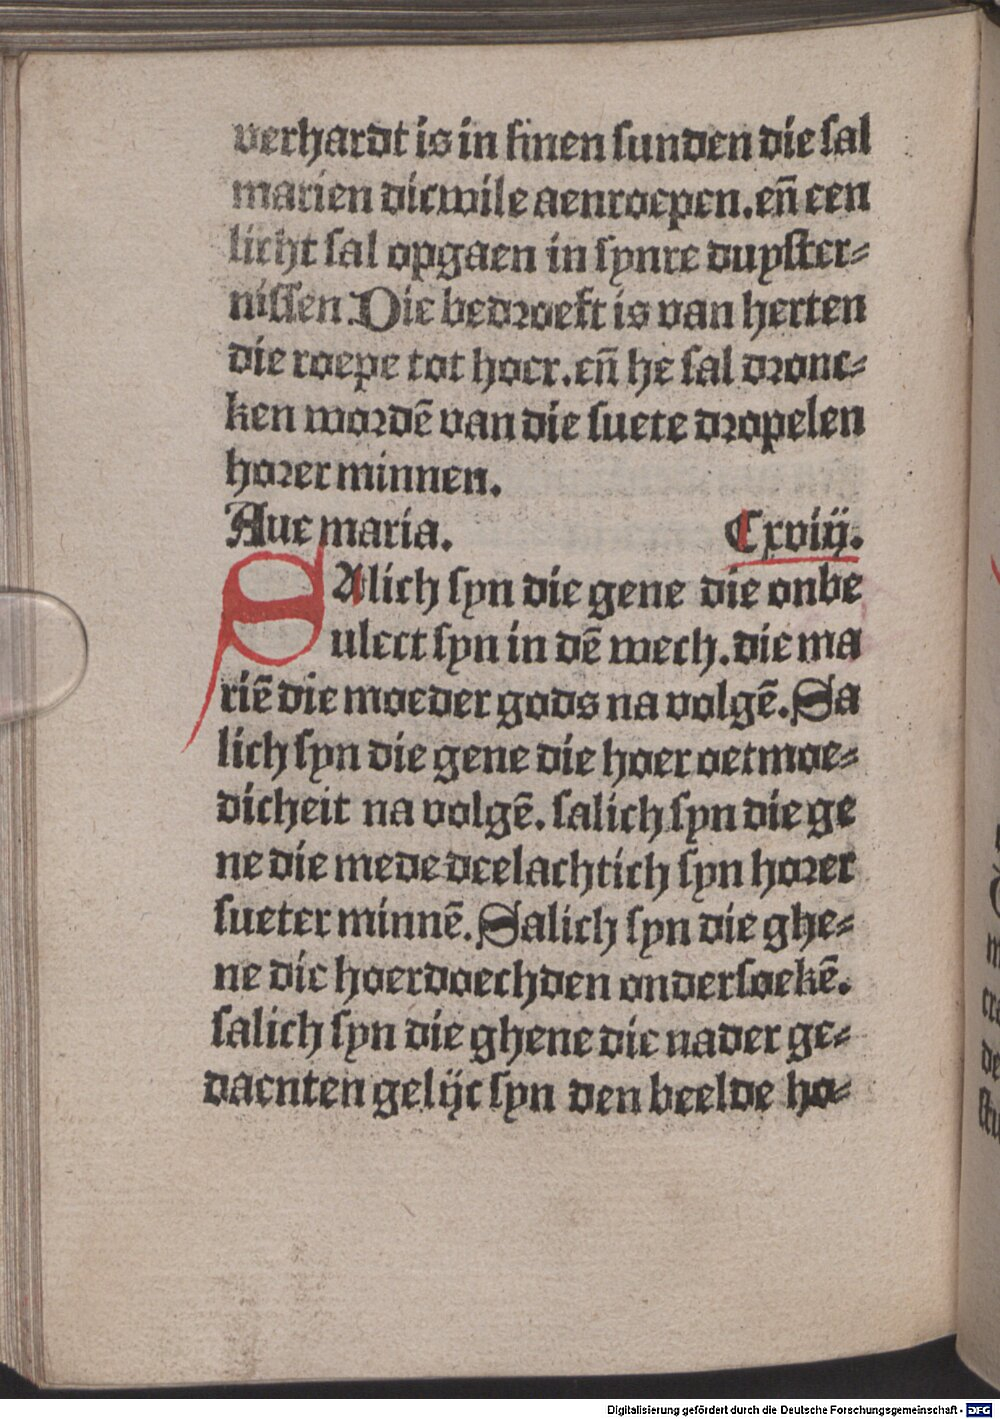 verhardt is in sinen sunden die sal
marien dicwile aenroepen. en̄ een
licht sal opgaen in synre duyster⸗
nissen. Die bedroeft is van herten
die roepe tot hoer. en̄ he sal dronc⸗
ken wordē van die suete dropelen
horer minnen.
Aue maria. Cxviij.
SAlich syn die gene die onbe
ulect syn in dē wech. die ma
riē die moeder gods na volgē. Sa
lich syn die gene die hoer oetmoe⸗
dicheit na volgē. salich syn die ge
ne die mede deelachtich syn horer
sueter minnē. Salich syn die ghe⸗
ne die hoer doechden ondersoekē.
salich syn die ghene die nader ge⸗
daenten gelijc syn den beelde ho⸗
Digitalisierung gefördert durch die Deutsche Forschungsgemeinschaft - DFG